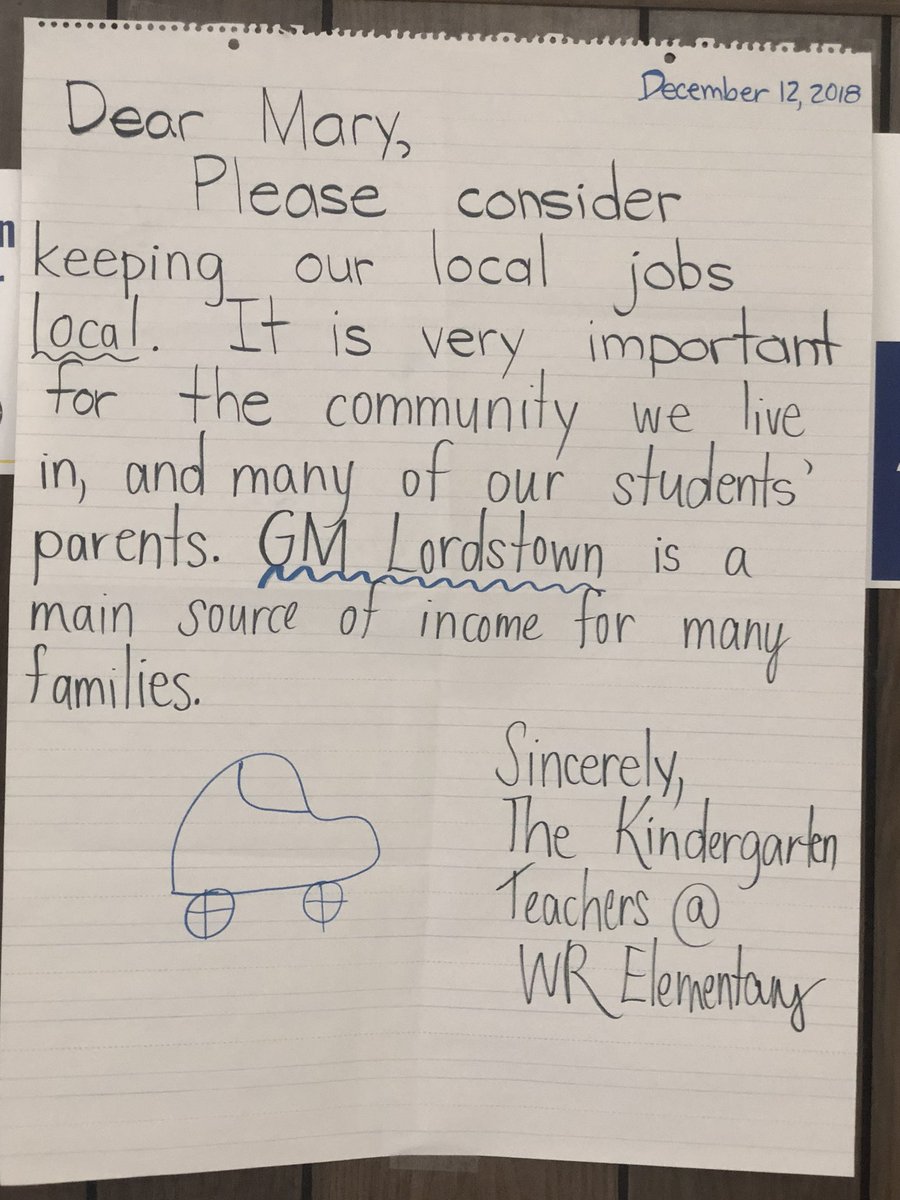 December 12, 2018
Dear Mary,
Please consider
keeping our local jobs
local. It is very important
for the community we live
in, and many of our students'
parents. GM Lordstown is a
main source of income for many
families.
Sincerely,
The Kindergarten
Teachers @
WR Elementary